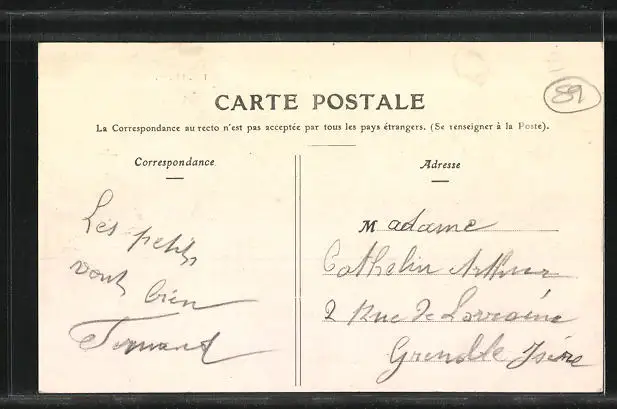 CARTE POSTALE
La Correspondance au recto n'est pas acceptée par tous les pays étrangers. (Se renseigner à la Poste).
Correspondance
Adresse
89
Les petits
vont bien
Fernand
Madame
Cathelin Arthur
2 Rue de Lorraine
Grenoble Isère